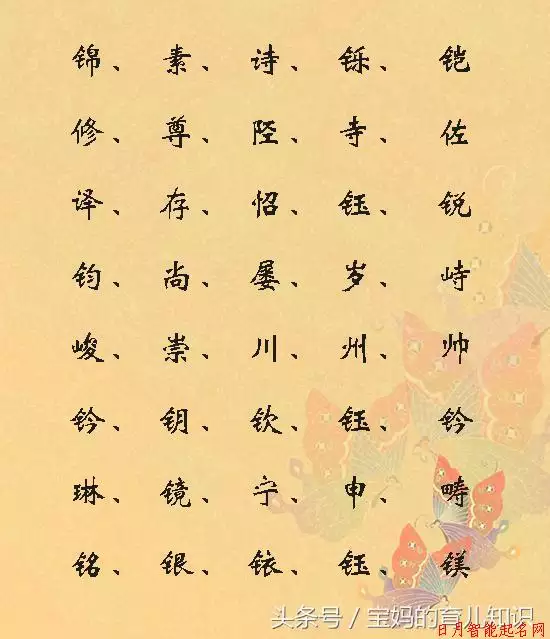 锦、素、诗、铄、铠
修、尊、陉、寺、佐
译、存、怊、钰、锐
钧、尚、屡、岁、峙
峻、崇、川、州、帅
钤、钥、钦、钰、钤
琳、镜、宁、申、畴
铭、银、铱、钰、镁
头条号／宝妈的育儿知识
日月智能起名网